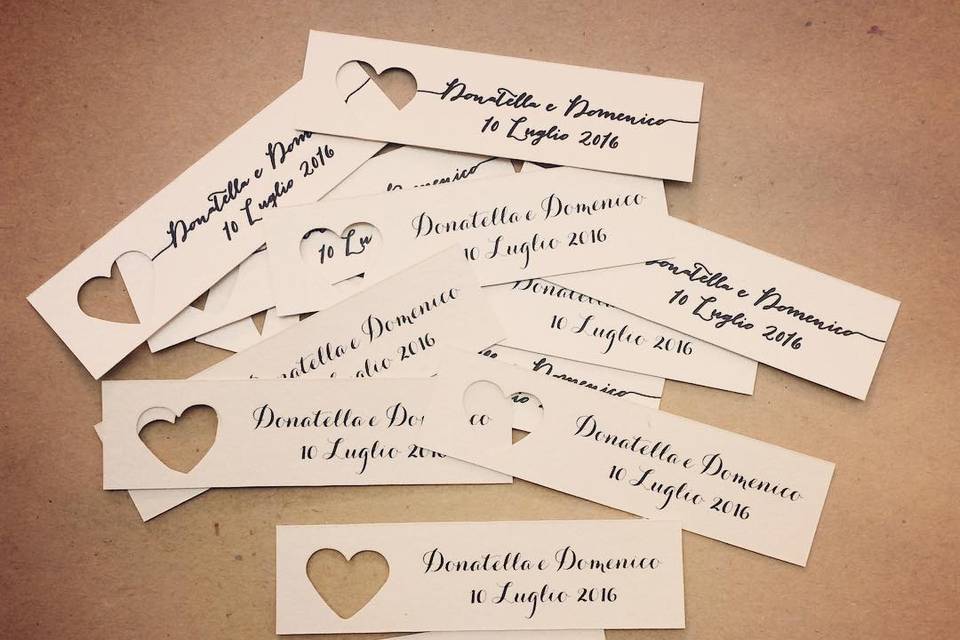 Donatella e Domenico
10 Luglio 2016
Donatella e Dom
10 Luglio 2016
Domenico
Donatella e Domenico
10 Luglio 2016
10 Lu
Donatella e Domenico
10 Luglio 2016
Donatella e Domenico
10 Luglio 2016
Donatella
10 Luglio 2016
Domenico
Donatella e Do
10 Luglio 2016
co
Donatella e Domenico
10 Luglio 2016
Donatella e Domenico
10 Luglio 2016